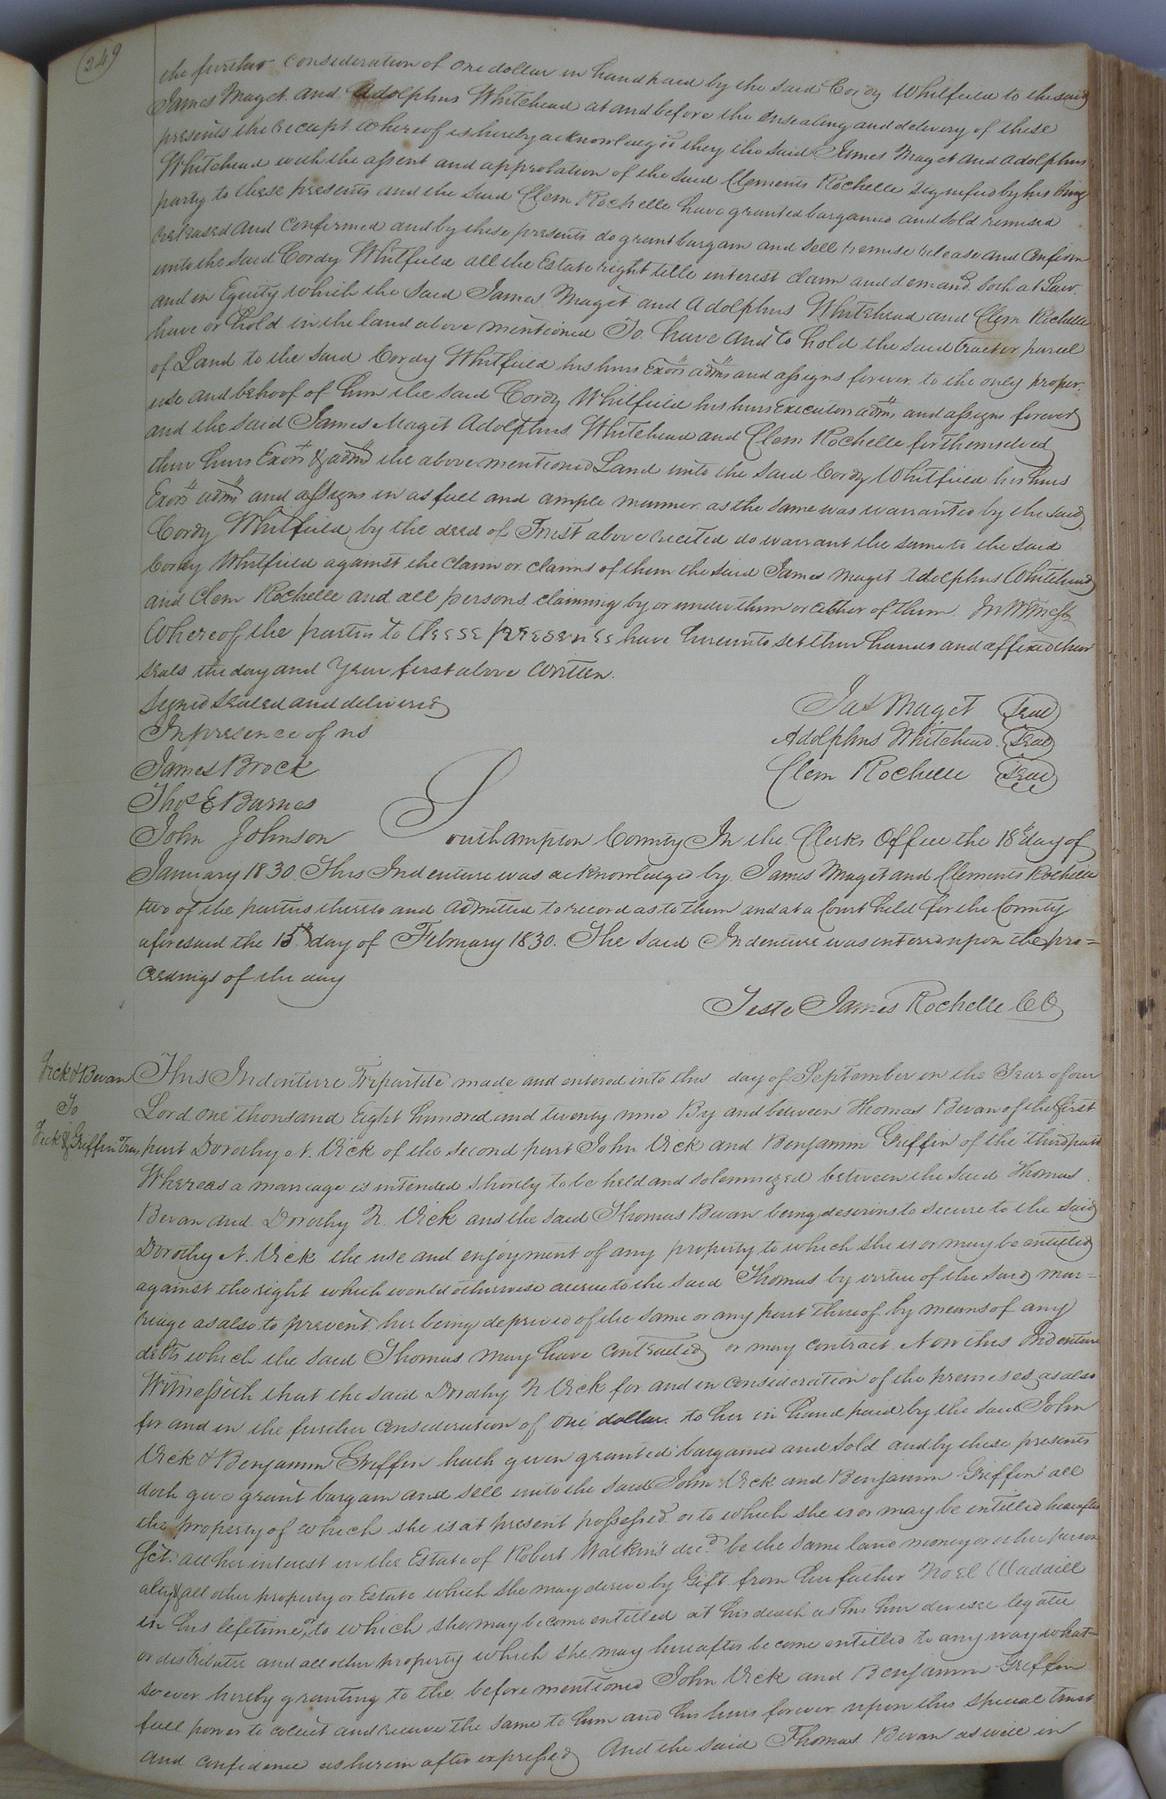 249
the further consideration of one dollar in hand paid by the said Cordy Whitfield to the said
James Maget and Adolphus Whitehead at and before the ensealing and delivery of these
presents the receipt whereof is hereby acknowledged they the said James Maget and Adolphus
Whitehead with the assent and approbation of the said Clements Rochelle signified by his being
party to these presents and the said Clem Rochelle have granted bargained and sold remised
released and confirmed and by these presents do grant bargain and sell remise release and confirm
unto the said Cordy Whitfield all the Estate right title interest claim and demand both at Law
and in Equity which the said James Maget and Adolphus Whitehead and Clem Rochelle
have or hold in the land above mentioned To have and to hold the said tract or parcel
of Land to the said Cordy Whitfield his heirs Exors adms and assigns forever to the only proper
use and behoof of him the said Cordy Whitfield his heirs Executors adms and assigns forever
and the said James Maget Adolphus Whitehead and Clem Rochelle for themselves
their heirs Exors & adms the above mentioned Land unto the said Cordy Whitfield his heirs
Exors adms and assigns in as full and ample manner as the same was warranted by the said
Cordy Whitfield by the deed of Trust above recited do warrant the same to the said
Cordy Whitfield against the claim or claims of them the said James Maget Adolphus Whitehead
and Clem Rochelle and all persons claiming by or under them or either of them In Witness
Whereof the parties to these presents have hereunto set their hands and affixed their
seals the day and Year first above Written.
Signed Sealed and delivered
In presence of us
James Brock
Thos E Barnes
John Johnson
Jas Maget Seal
Adolphus Whitehead Seal
Clem Rochelle Seal
Southampton County In the Clerks Office the 18th day of
January 1830 This Indenture was acknowledged by James Maget and Clements Rochelle
two of the parties thereto and Admitted to record as to them and at a Court held for the County
aforesaid the 15th day of February 1830. The said Indenture was entered upon the pro=
ceedings of the day
Teste James Rochelle CC
Vick & Bevan
To
Vick & Griffin Trus
This Indenture Tripartite made and entered into this day of September in the Year of our
Lord one thousand Eight hundred and twenty nine By and between Thomas Bevan of the first
part Dorothy N. Vick of the second part John Vick and Benjamin Griffin of the third part
Whereas a marriage is intended shortly to be held and solemnized between the said Thomas
Bevan and Dorothy N. Vick and the said Thomas Bevan being desirous to secure to the said
Dorothy N. Vick the use and enjoyment of any property to which she is or may be entitled
against the right which would otherwise accrue to the said Thomas by virtue of the said mar=
riage as also to prevent her being deprived of the same or any part thereof by means of any
debts which the said Thomas may have contracted or may contract Now this Indenture
Witnesseth that the said Dorothy N Vick for and in consideration of the premises as also
for and in the further consideration of one dollar to her in hand paid by the said John
Vick & Benjamin Griffin hath given granted bargained and sold and by these presents
doth give grant bargain and sell unto the said John Vick and Benjamin Griffin all
the property of which she is at present possessed or to which she is or may be entitled hereafter
all her interest in the Estate of Robert Watkins decd be the same land money or other person
alty & all other property or Estate which she may derive by Gift from her father Noel Waddill
in his lifetime or to which she may become entitled at his death as his heir devisee legatee
or distributee and all other property which she may hereafter become entitled to any way what=
soever hereby granting to the before mentioned John Vick and Benjamin Griffin
full power to collect and receive the same to him and his heirs forever upon this special trust
and confidence as herein after expressed And the said Thomas Bevan as well in